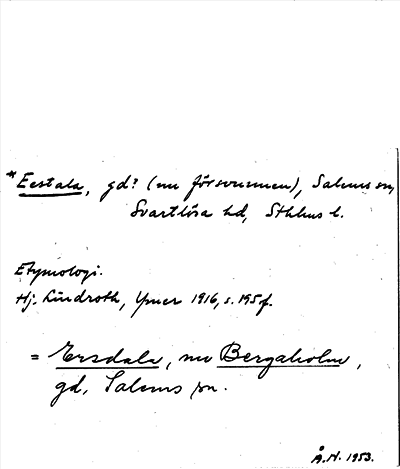 *Eestala, gd? (nu försvunnen), Salems sn,
Svartlösa hd, Sthlms l.
Etymologi.
Hj. Lindroth, Ymer 1916, s. 195 f.
= Ersdala, nu Bergaholm,
gd, Salems sn.
Å.N. 1953.